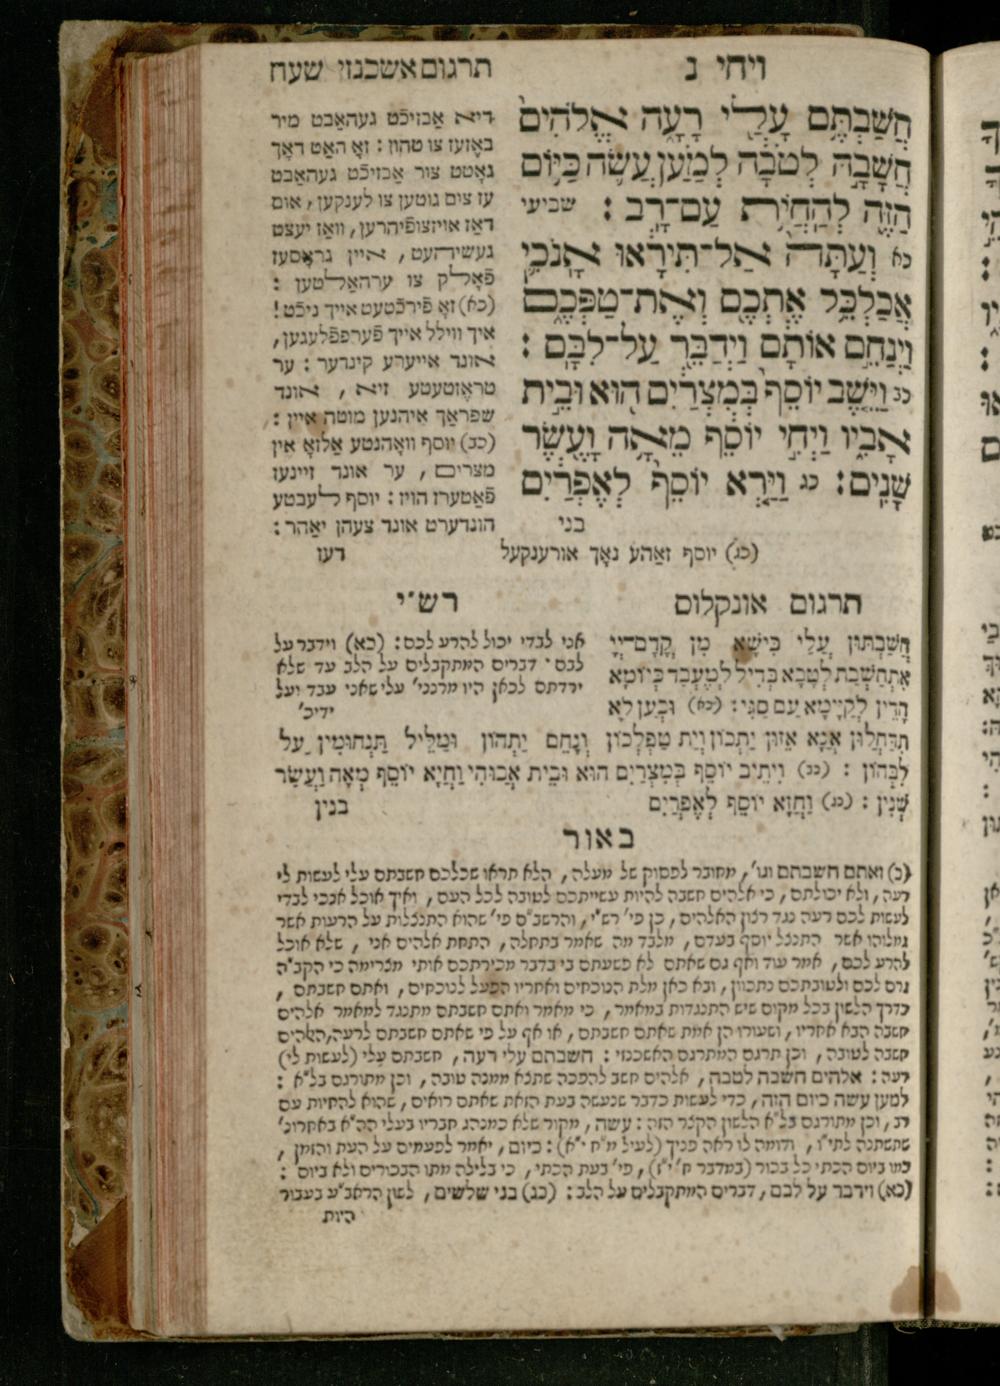 ויחי נ
תרגום אשכנזי שעח
חֲשַׁבְתֶּם עָלַי רָעָה אֱלֹהִים
חֲשָׁבָהּ לְטֹבָה לְמַעַן עֲשֹׂה כַּיּוֹם
הַזֶּה לְהַחֲיֹת עַם־רָב : שביעי
כא וְעַתָּה אַל־תִּירָאוּ אָנֹכִי
אֲכַלְכֵּל אֶתְכֶם וְאֶת־טַפְּכֶם
וַיְנַחֵם אוֹתָם וַיְדַבֵּר עַל־לִבָּם :
כב וַיֵּשֶׁב יוֹסֵף בְּמִצְרַיִם הוּא וּבֵית
אָבִיו וַיְחִי יוֹסֵף מֵאָה וָעֶשֶׂר
שָׁנִים : כג וַיַּרְא יוֹסֵף לְאֶפְרַיִם
בני
דיא אַבזיכֿט געהאַבט מיר
באָזעז צו טהון : זאָ האַט דאָך
גאָטט צור אַבזיכֿט געהאַבט
עז צום גוטען צו לענקען, אום
דאַז אויזצופֿיהרען, וואַז יעצט
געשיהעט, איין גראָסעז
פֿאָלק צו ערהאַלטען :
(כא) זאָ פֿירכֿטעט אייך ניכֿט!
איך ווילל אייך פֿערפֿלעגען,
אונד אייערע קינדער : ער
טראָזטעטע זיא, אונד
שפראַך איהנען מוטה איין :
(כב) יוסף וואָהנטע אַלזאָ אין
מצרים, ער אונד זיינעז
פֿאַטערז הויז : יוסף לעבטע
הונדערט אונד צעהן יאַהר :
(כג) יוסף זאַהע נאָך אורענקעל
דעז
תרגום אונקלוס
חֲשַׁבְתּוּן עֲלַי בִּישָׁא מִן קֳדָם־יְיָ
אִתְחַשְׁבַת לְטָבָא בְּדִיל לְמֶעְבַּד כְּיוֹמָא
הָדֵין לְקַיָּימָא עַם סַגִּי : (כא) וּכְעַן לָא
תִדְחֲלוּן אֲנָא אֵזוּן יַתְכוֹן וְיַת טַפְלְכוֹן וְנַחֵם יַתְהוֹן וּמַלֵּיל תַּנְחוּמִין עַל
לִבְּהוֹן : (כב) וִיתֵיב יוֹסֵף בְּמִצְרַיִם הוּא וּבֵית אֲבוּהִי וַחֲיָא יוֹסֵף מְאָה וַעֲשַׂר
שְׁנִין : (כג) וַחֲזָא יוֹסֵף לְאֶפְרַיִם
בנין
רש"י
אני לבדי יכול להרע לכם : (כא) וידבר על
לבם׳ דברים המתקבלים על הלב עד שלא
ירדתם לכאן היו מרנני׳ עלי שאני עבד ועל
ידיכ׳
באור
(כ) ואתם חשבתם וגו׳, מחובר לפסוק של מעלה, הלא תראו שכלכם חשבתם עלי לעשות לי
רעה, ולא יכולתם, כי אלהים חשבה להיות עשייתכם לטובה לכל העם, ואיך אוכל אנכי לבדי
לעשות לכם רעה נגד רצון האלהים, כן פי׳ רש״י, והרשב״ם פי׳ שהוא התנצלות על הרעות אשר
גמלוהו אשר התנצל יוסף בעדם, מלבד מה שאמר בתחלה, התחת אלהים אני, שלא אוכל
להרע לכם, אמר עוד ואף גם שאתם לא פשעתם בי בדבר מכירתכם אותי מצרימה כי הקב״ה
גרם לכם ולטובתכם נתכוון, ובא כאן מלת הנוכחים ואחריו הפעל לנוכחים, ואתם חשבתם,
כדרך הלשון בכל מקום שיש התנגדות במאמר, כי מאמר ואתם חשבתם מתנגד למאמר אלהים
חשבה הבא אחריו, ושעורו הן אמת שאתם חשבתם, או אף על פי שאתם חשבתם לרעה, האלהים
חשבה לטובה, וכן תרגם המתרגם האשכנזי : חשבתם עלי רעה, חשבתם עלי (לעשות לי)
רעה : אלהים חשבה לטבה, אלהים חשב להפכה שתצא ממנה טובה, וכן מתורגם בל״א :
למען עשה כיום הזה, כדי לעשות כדבר שנעשה בעת הזאת שאתם רואים, שהוא להחיות עם
רב, וכן מתורגם בל״א הלשון הקצר הזה : עשה, מקור שלא כמנהג חבריו בעלי הה״א באחרונ׳
שתשתנה לתי״ו, ודומה לו ראה פניך (לעיל מ״ח י״א) : כיום, יאמר לפעמים על העת והזמן,
כמו ביום הכתי כל בכור (במדבר ח׳ י״ז), פי׳ בעת הכתי, כי בלילה מתו הבכורים ולא ביום :
(כא) וידבר על לבם, דברים המתקבלים על הלב : (כג) בני שלשים, לשון הראב״ע בעבור
היות